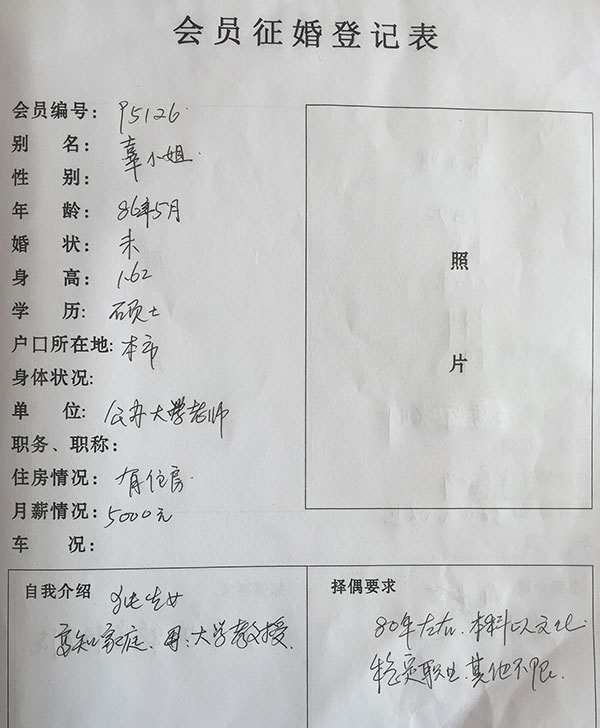 会员征婚登记表
会员编号: P5126
别 名: 辜小姐
性 别:
年 龄: 86年5月
婚 状: 未
身 高: 1.62
学 历: 硕士
户口所在地: 本市
身体状况:
单 位: 公办大学老师
职务、职称:
住房情况: 有住房
月薪情况: 5000元
车 况:
照
片
自我介绍 独生女
高知家庭. 男:大学教授.
择偶要求
80年左右. 本科以文化.
稳定职业. 其他不限.